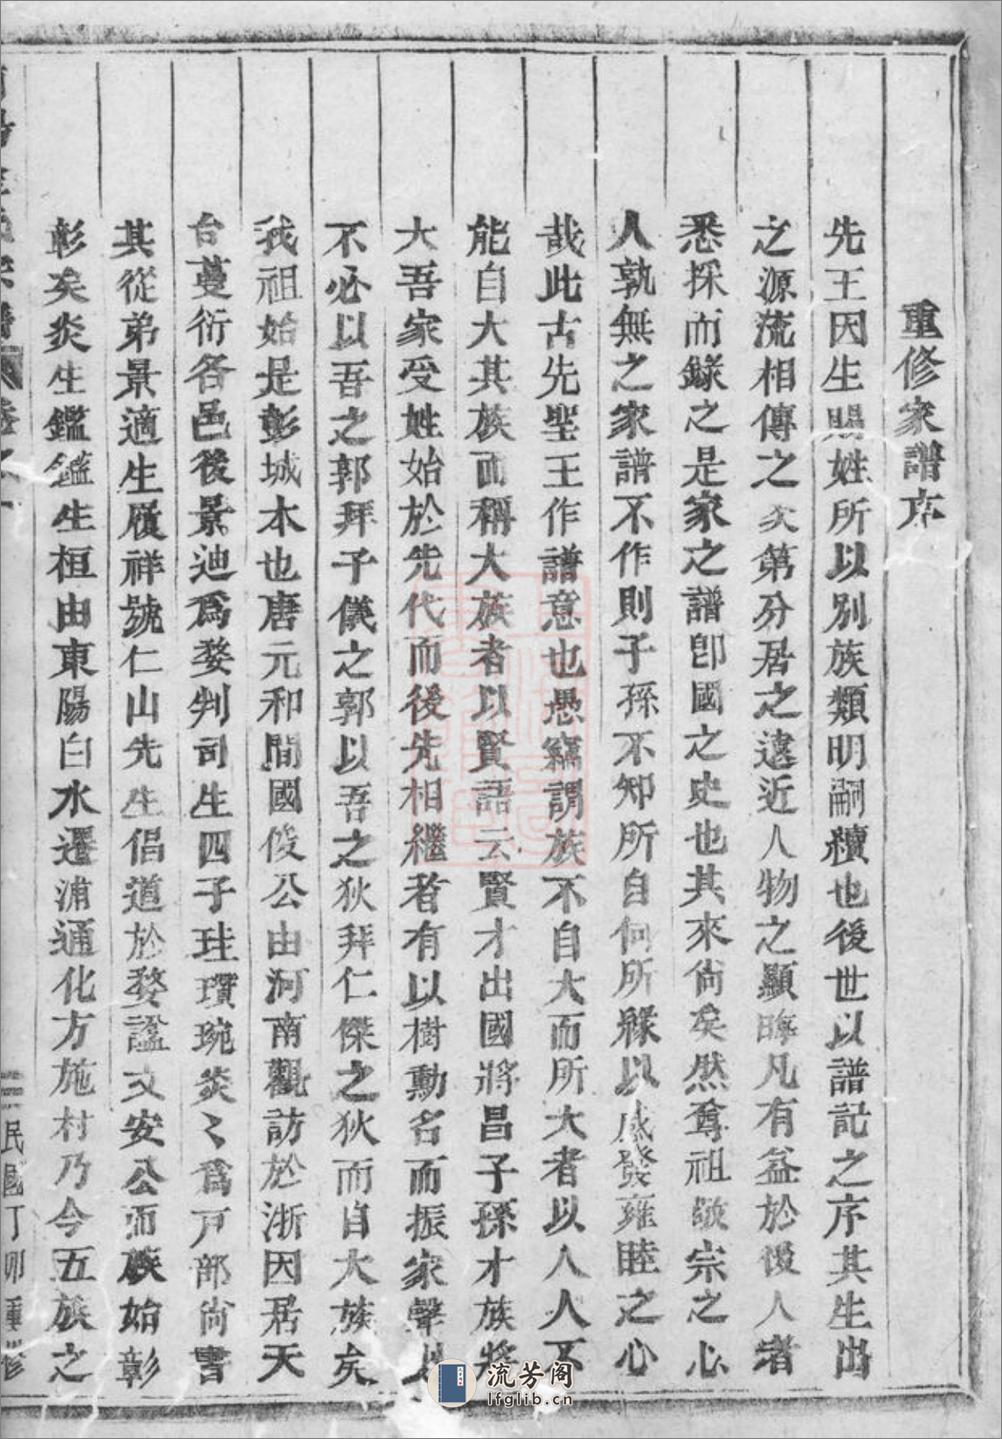 重修家譜序
先王因生賜姓所以別族類明嗣續也後世以譜記之序其生出
之源流相傳之次第分居之遠近人物之顯晦凡有益於後人者
悉採而錄之是家之譜卽國之史也其來尙矣然尊祖敬宗之心
人孰無之家譜不作則子孫不知所自何所緣以感發雍睦之心
哉此古先聖王作譜意也愚竊謂族不自大而所大者以人人不
能自大其族而稱大族者以賢語云賢才出國將昌子孫才族將
大吾家受姓始於先代而後先相繼者有以樹動名而振家聲
不必以吾之郭拜子儀之郭以吾之狄拜仁傑之狄而自大族矣
我祖始是彭城本也唐元和間國俊公由河南觀訪於浙因居天
台蔓衍各邑後景迪爲婺判司生四子珪瓚琬炎〻爲戸部尙書
其從弟景適生履祥號仁山先生倡道於婺諡文安公而族始彰
彰矣炎生鑑鑑生桓由東陽白水遷浦通化方施村乃今五族之
民國丁卯重修
流芳阁
lfglib.cn